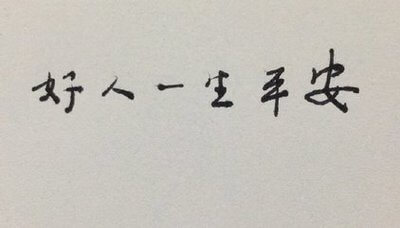 好人一生平安